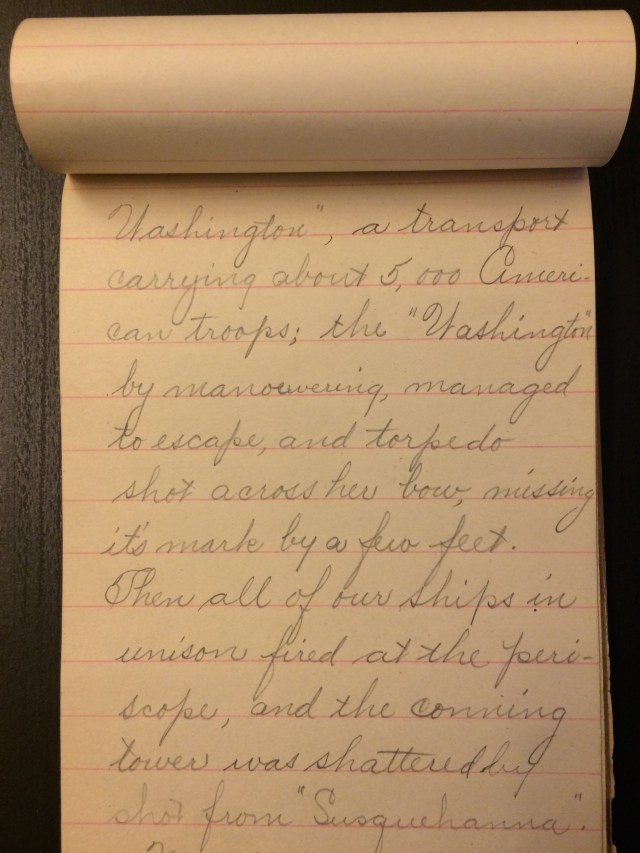 Washington", a transport
carrying about 5,000 Ameri-
can troops; the "Washington"
by manouvering, managed
to escape, and torpedo
shot across her bow, missing
it's mark by a few feet.
Then all of our ships in
unison fired at the peri-
scope, and the conning
tower was shattered by
shot from "Susquehanna".